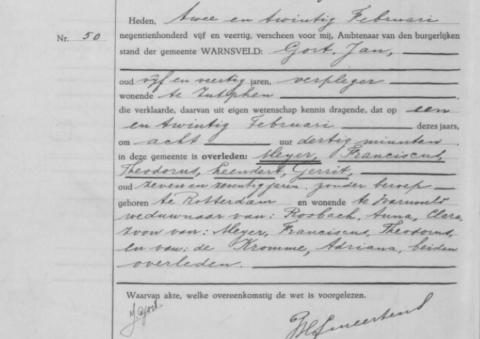 Heden, twee en twintig Februari
Nr. 50
negentienhonderd vijf en veertig, verscheen voor mij, Ambtenaar van den burgerlijken
stand der gemeente WARNSVELD: Gort, Jan,
oud vijf en veertig jaren, verpleger
wonende te Zutphen
die verklaarde, daarvan uit eigen wetenschap kennis dragende, dat op een
en twintig Februari dezes jaars,
om acht uur dertig minuten
in deze gemeente is overleden: Meyer, Franciscus,
Theodorus, Leendert, Gerrit,
oud zeven en zeventig jaren, zonder beroep
geboren te Rotterdam en wonende te
weduwnaar van: Rosbach, Anna, Clara
zoon van: Meyer, Franciscus, Theodorus,
en van: de Kromme, Adriana, beiden
overleden.
Waarvan akte, welke overeenkomstig de wet is voorgelezen.
J. Gort